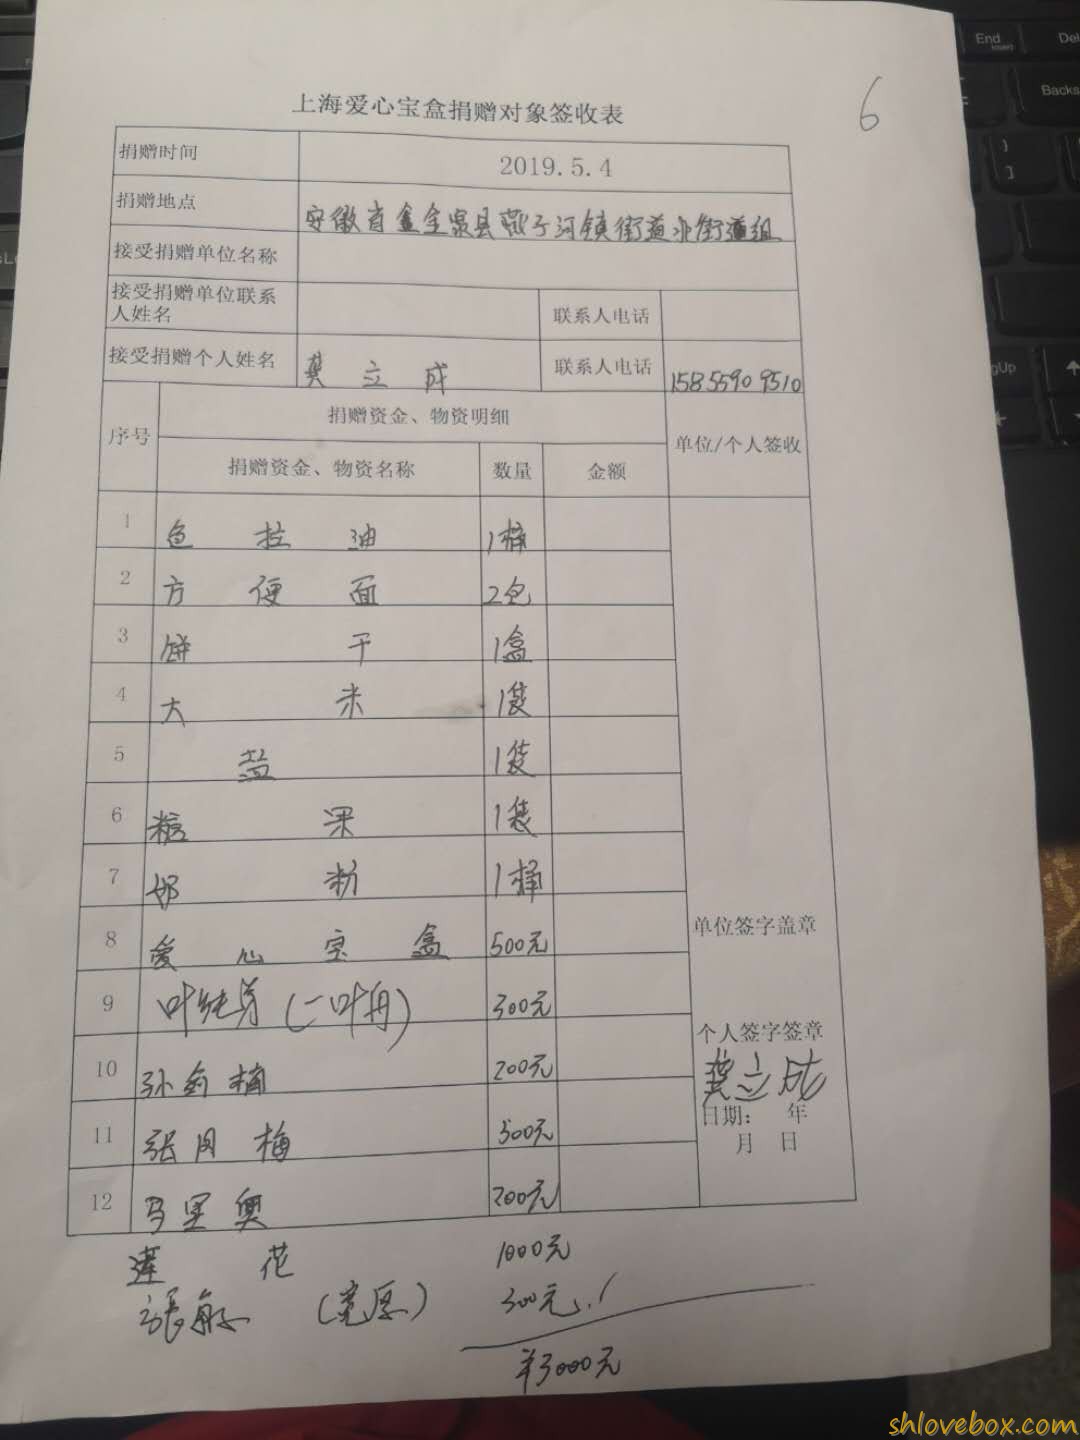 6
上海爱心宝盒捐赠对象签收表
捐赠时间 2019.5.4
捐赠地点 安徽省金寨县燕子河镇街道办街道组
接受捐赠单位名称
接受捐赠单位联系人姓名 联系人电话
接受捐赠个人姓名 龚立成 联系人电话 15855909510
序号 捐赠资金、物资明细 单位/个人签收
捐赠资金、物资名称 数量 金额
1 色拉油 1桶
2 方便面 2包
3 饼干 1盒
4 大米 1袋
5 盐 1袋
6 糖果 1袋
7 奶粉 1桶
8 爱心宝盒 500元
单位签字盖章
9 叶纯芳(一叶舟) 300元
个人签字签章
龚立成
10 孙剑楠 200元
日期: 年
月 日
11 张月梅 500元
12 马里奥 200元
莲花 1000元
張敏 (宽厚) 300元
¥3000元
shlovebox.com